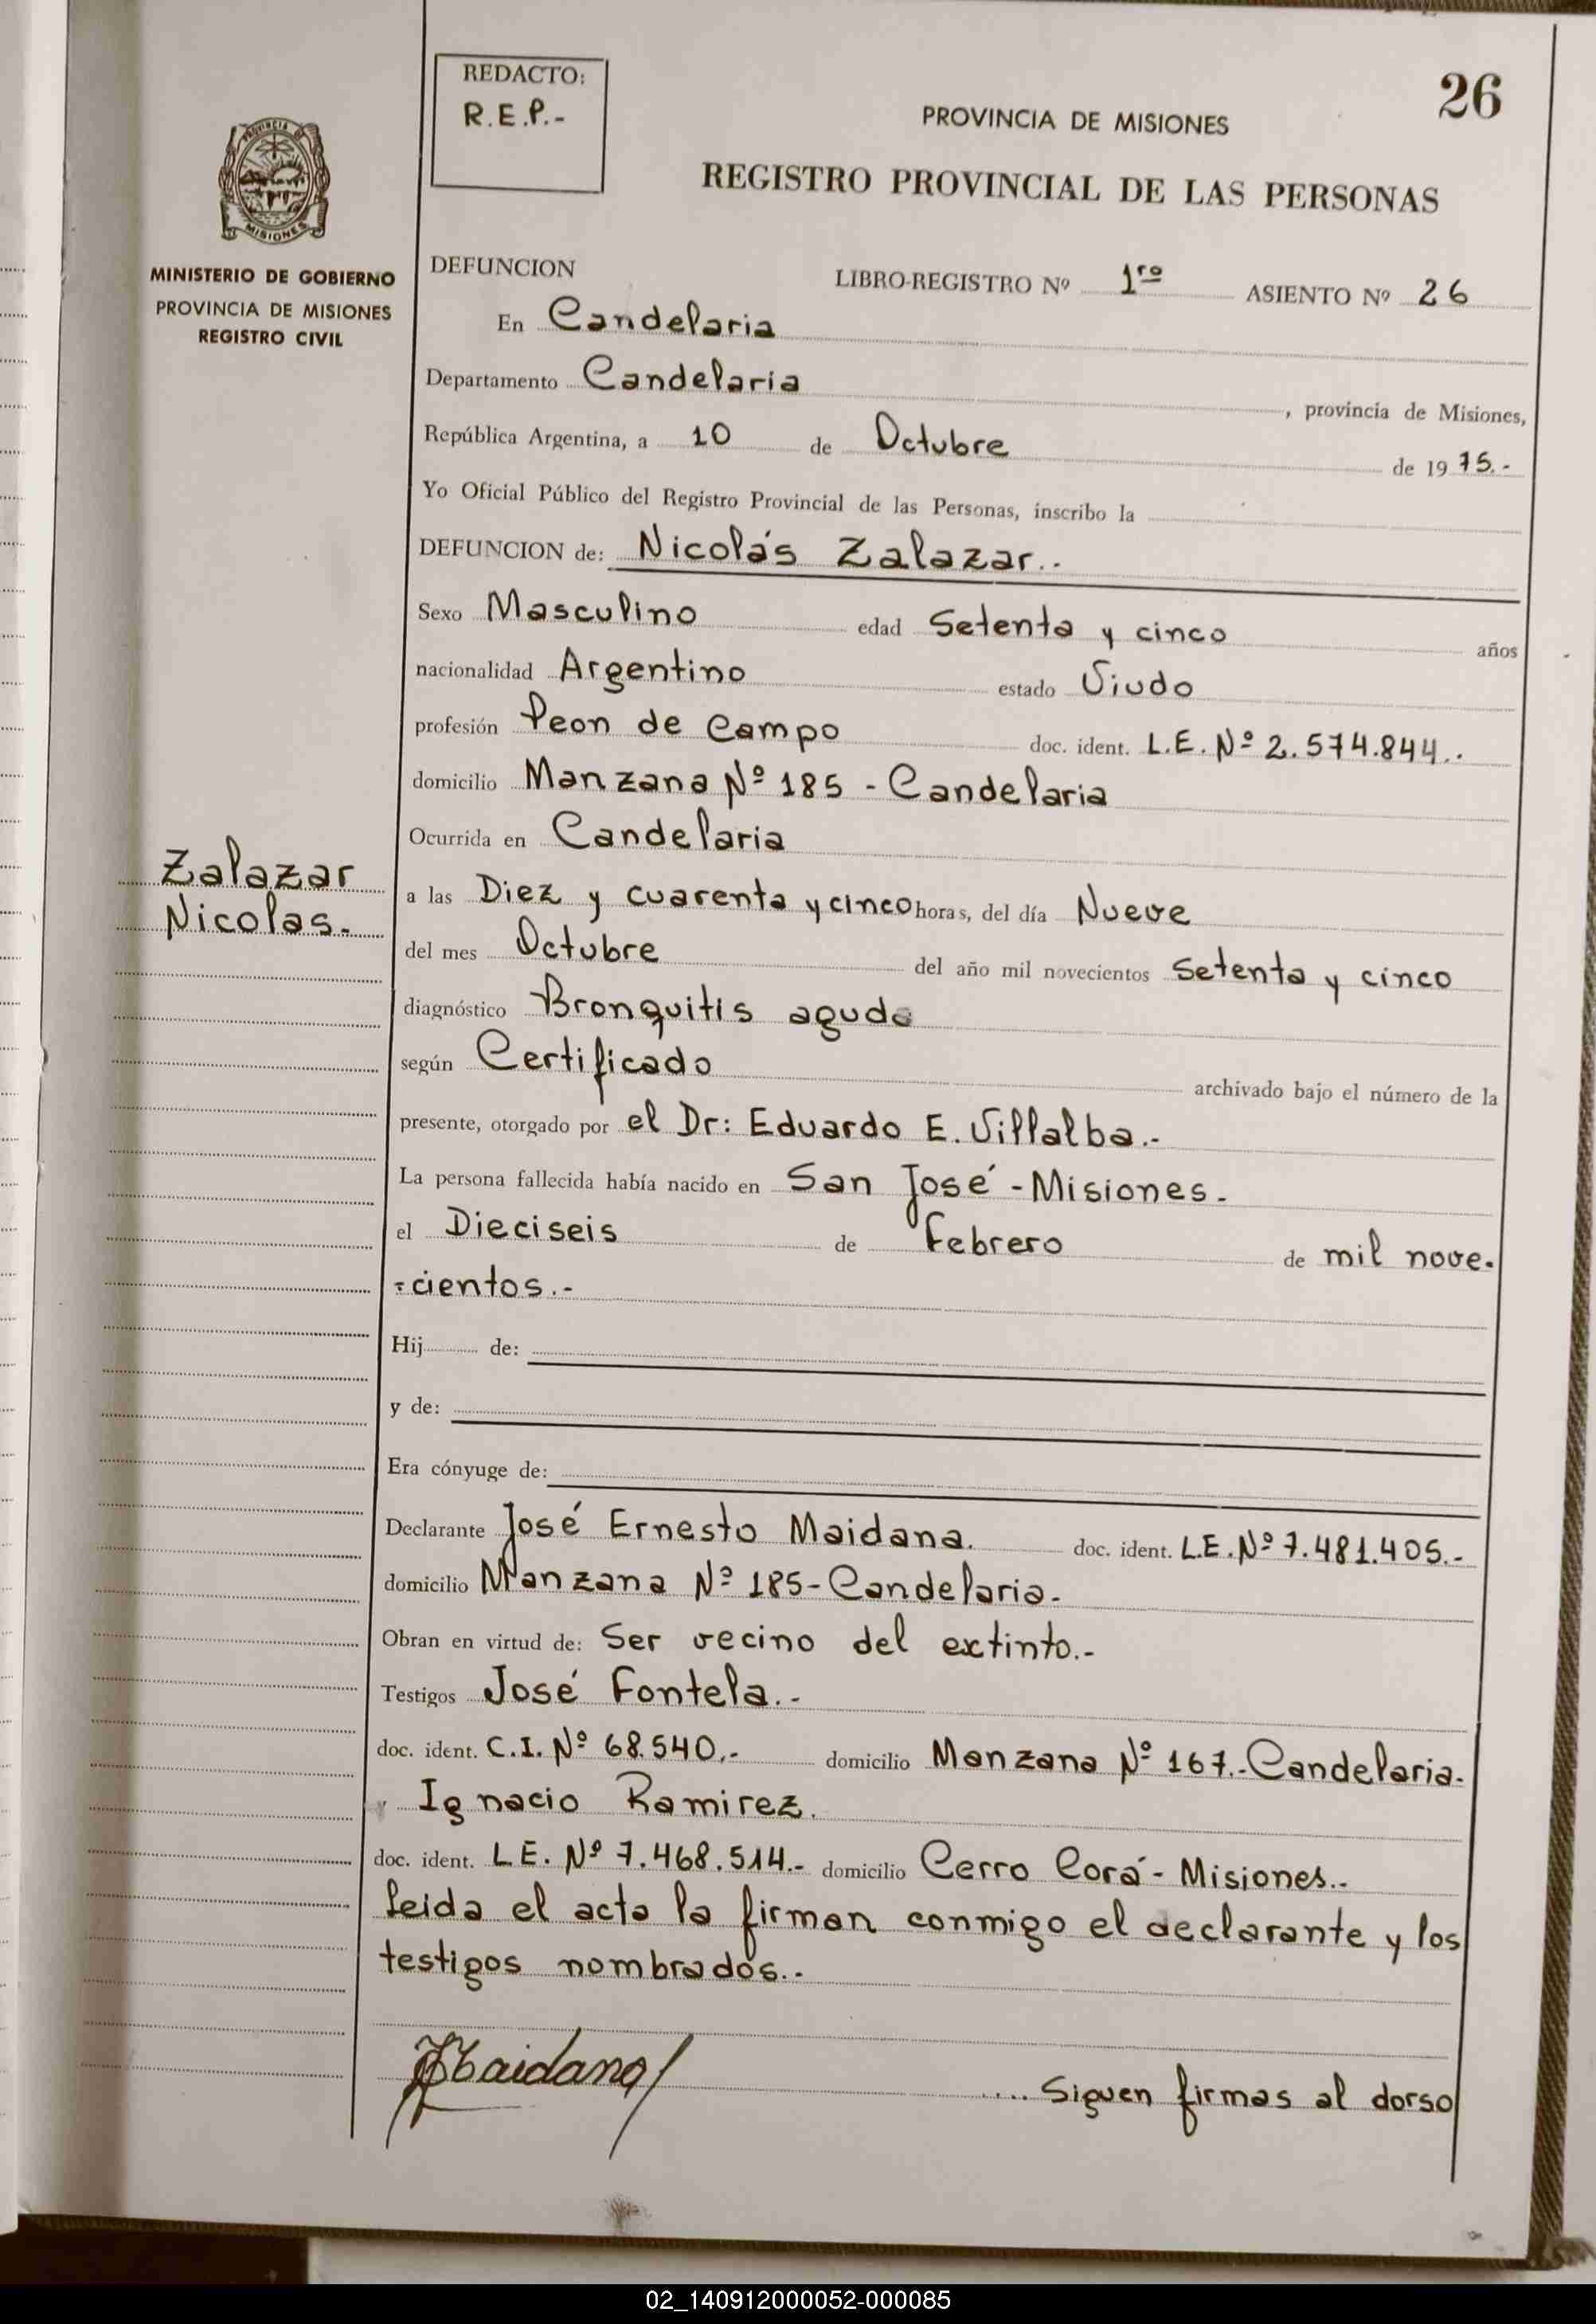 26
REDACTO:
R.E.P.-
PROVINCIA DE MISIONES
REGISTRO PROVINCIAL DE LAS PERSONAS
PROVINCIA DE
MISIONES
MINISTERIO DE GOBIERNO
PROVINCIA DE MISIONES
REGISTRO CIVIL
DEFUNCION LIBRO-REGISTRO Nº 1ro ASIENTO Nº 26
En Candelaria
Departamento Candelaria, provincia de Misiones,
República Argentina, a 10 de Octubre de 1975.-
Yo Oficial Público del Registro Provincial de las Personas, inscribo la
DEFUNCION de: Nicolás Zalazar.-
Sexo Masculino edad Setenta y cinco años
nacionalidad Argentino estado Viudo
profesión Peon de Campo doc. ident. L.E. Nº 2.574.844.-
domicilio Manzana Nº 185 - Candelaria
Ocurrida en Candelaria
Zalazar
Nicolas.-
a las Diez y cuarenta y cinco horas, del día Nueve
del mes Octubre del año mil novecientos Setenta y cinco
diagnóstico Bronquitis aguda
según Certificado archivado bajo el número de la
presente, otorgado por el Dr: Eduardo E. Villalba.-
La persona fallecida había nacido en San José - Misiones.-
el Dieciseis de Febrero de mil nove-
=cientos.-
Hij de:
y de:
Era cónyuge de:
Declarante José Ernesto Maidana. doc. ident. L.E. Nº 7.481.405.-
domicilio Manzana Nº 185- Candelaria.-
Obran en virtud de: Ser vecino del extinto.-
Testigos José Fontela.-
doc. ident. C.I. Nº 68.540.- domicilio Manzana Nº 167.- Candelaria.-
y Ignacio Ramirez.
doc. ident. L.E. Nº 7.468.514.- domicilio Cerro Corá - Misiones.-
leida el acta la firman conmigo el declarante y los
testigos nombrados.-
Maidana
.... Siguen firmas al dorso
02_140912000052-000085